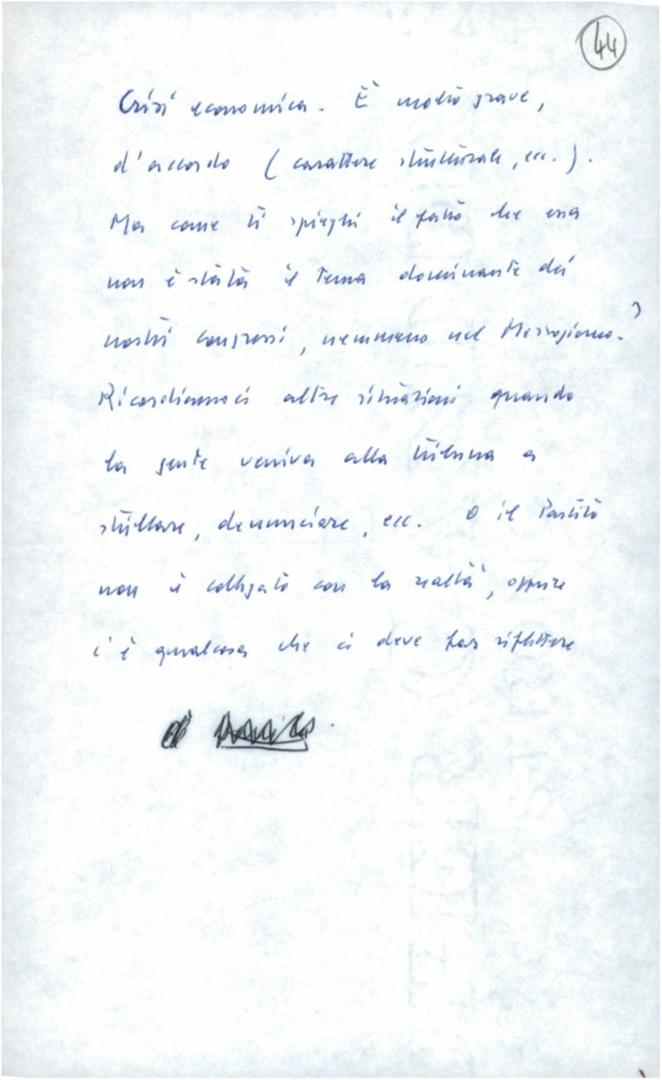 44
Crisi economica. È molto grave,
d'accordo (carattere strutturale, ecc.).
Ma come ti spieghi il fatto che essa
non è stata il tema dominante dei
nostri congressi, nemmeno nel Mezzogiorno?
Ricordiamoci altre situazioni quando
la gente veniva alla tribuna a
strillare, denunciare, ecc. O il Partito
non è collegato con la realtà, oppure
c'è qualcosa che ci deve far riflettere